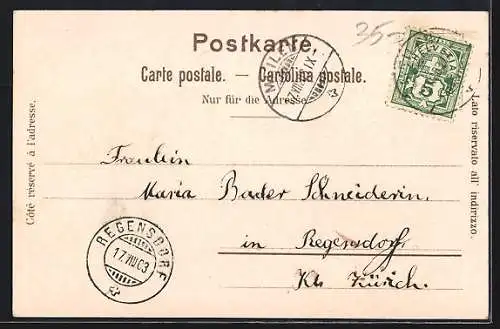 35
Postkarte.
Carte postale. — Cartolina postale.
Nur für die Adresse.
HELVETIA
5
Côté réservé à l'adresse.
Lato riservato all' indirizzo.
Fräulein
Maria Bader Schneiderin,
in Regensdorf
Kt. Zürich.
REGENSDORF
17.VIII.03